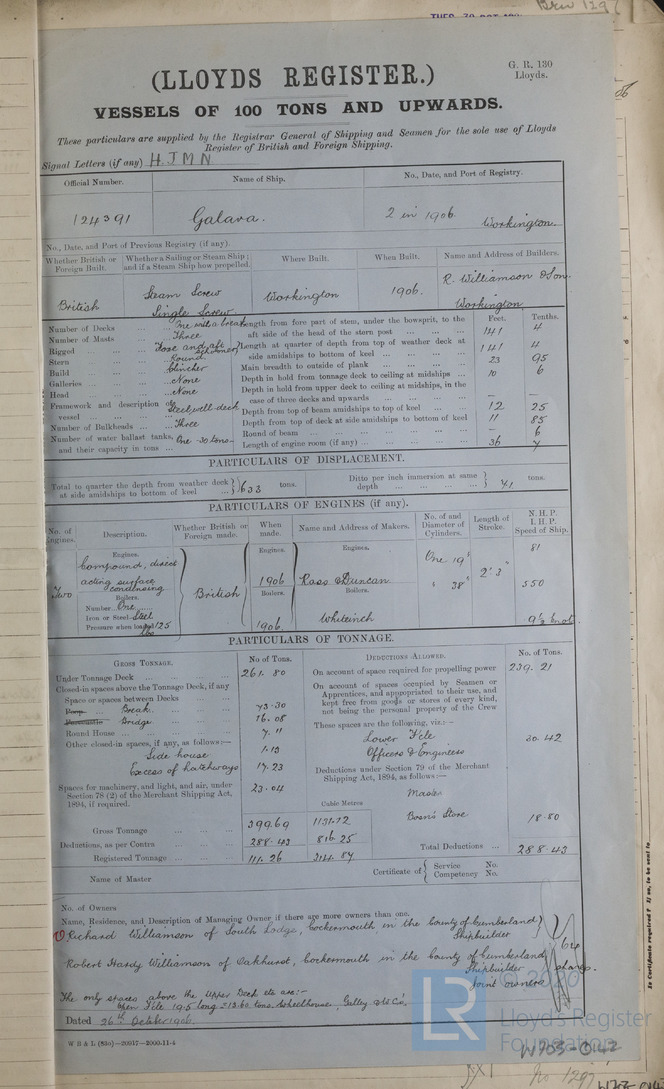 (LLOYDS REGISTER.)
G. R. 130
Lloyds.
VESSELS OF 100 TONS AND UPWARDS.
These particulars are supplied by the Registrar General of Shipping and Seamen for the sole use of Lloyds
Register of British and Foreign Shipping.
Signal Letters (if any) H J M N
Official Number. Name of Ship. No., Date, and Port of Registry.
124391 Galava. 2 in 1906 Workington.
No., Date, and Port of Previous Registry (if any).
Whether British or Foreign Built. Whether a Sailing or Steam Ship; and if a Steam Ship how propelled. Where Built. When Built. Name and Address of Builders.
British Steam Screw Single Screw Workington 1906. R. Williamson & Son Workington
Feet. Tenths.
Number of Decks ... One with a break
Number of Masts ... Three
Rigged ... Fore and aft schooner
Stern ... Round
Build ... Clincher
Galleries ... None
Head ... None
Framework and description of vessel ... Steel, well-deck
Number of Bulkheads ... Three
Number of water ballast tanks, and their capacity in tons ... One - 30 tons
Length from fore part of stem, under the bowsprit, to the aft side of the head of the stern post ... 141 4
Length at quarter of depth from top of weather deck at side amidships to bottom of keel ... 141 4
Main breadth to outside of plank ... 23 95
Depth in hold from tonnage deck to ceiling at midships ... 10 6
Depth in hold from upper deck to ceiling at midships, in the case of three decks and upwards ... — —
Depth from top of beam amidships to top of keel ... 12 25
Depth from top of deck at side amidships to bottom of keel 11 85
Round of beam ... — 6
Length of engine room (if any) ... 36 7
PARTICULARS OF DISPLACEMENT.
Total to quarter the depth from weather deck at side amidships to bottom of keel ... 633 tons.
Ditto per inch immersion at same depth ... tons.
PARTICULARS OF ENGINES (if any).
No. of Engines. Description. Whether British or Foreign made. When made. Name and Address of Makers. No. of and Diameter of Cylinders. Length of Stroke. N.H.P. I.H.P. Speed of Ship.
Two
Engines.
Compound, direct
acting surface
condensing
Boilers.
Number One
Iron or Steel Steel
Pressure when loaded 125 lbs
British
Engines.
1906
Boilers.
1906
Engines.
Ross & Duncan
Boilers.
Whiteinch
One 19"
" 38"
2' 3"
81
550
9½ knots
PARTICULARS OF TONNAGE.
GROSS TONNAGE. No of Tons.
Under Tonnage Deck ... 261. 80
Closed-in spaces above the Tonnage Deck, if any
Space or spaces between Decks ...
Poop Break ... 73. 30
Forecastle Bridge ... 16. 08
Round House ... 7. 11
Other closed-in spaces, if any, as follows:—
Side house 1. 13
Excess of Hatchways 17. 23
Spaces for machinery, and light, and air, under Section 78 (2) of the Merchant Shipping Act, 1894, if required. 23. 04
Cubic Metres
Gross Tonnage ... 399. 69 1131.72
Deductions, as per Contra ... 288. 43 816. 25
Registered Tonnage ... 111. 26 314. 87
DEDUCTIONS ALLOWED. No. of Tons.
On account of space required for propelling power 239. 21
On account of spaces occupied by Seamen or Apprentices, and appropriated to their use, and kept free from goods or stores of every kind, not being the personal property of the Crew
These spaces are the following, viz.:—
Lower F'cle
Officers & Engineers 30. 42
Deductions under Section 79 of the Merchant Shipping Act, 1894, as follows:—
Master
Bosn's Store 18. 80
Total Deductions ... 288. 43
Name of Master
Certificate of Service No.
Competency No.
No. of Owners
Name, Residence, and Description of Managing Owner if there are more owners than one.
Richard Williamson of South Lodge, Cockermouth, in the County of Cumberland
Shipbuilder
Robert Hardy Williamson of Oakhurst, Cockermouth in the County of Cumberland
Shipbuilder
Joint owners
64
shares.
The only spaces above the Upper Deck etc are:-
Open F'cle 19.5 long = 13.60 tons. Wheelhouse, Galley & W.C's.
Dated 26th October 1906
W B & L (83o)—20917—3000-11-4
© 2020
LR
Lloyd's Register
Foundation
W703-0142
No 1297